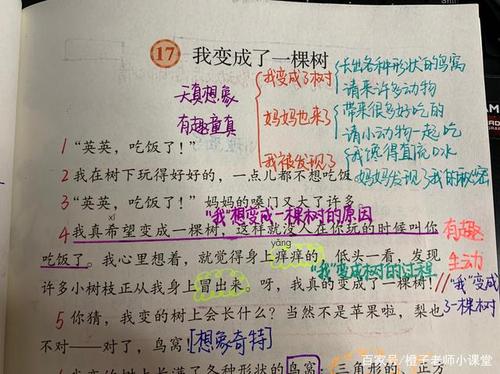 17 我变成了一棵树
天真想象
有趣童真
我变成了树
妈妈也来了
我被发现了
长出各种形状的鸟窝
请来许多动物
带来很多好吃的
请小动物一起吃
我馋得直流口水
妈妈发现了我的秘密
1 “英英，吃饭了！”
2 我在树下玩得好好的，一点儿都不想吃饭
3 “英英，吃饭了！”妈妈的嗓门又大了许多。
"我"想变成一棵树的原因
xī
4 我真希望变成一棵树，这样就没人在你玩的时候叫你
yǎng
吃饭了。我心里想着，就觉得身上痒痒的，低头一看，发现
有趣
生动
"我"变成树的过程
许多小树枝正从我身上冒出来。呀，我真的变成了一棵树！
//"我"变成了一棵树
5 你猜，我变的树上会长什么？当然不是苹果啦，梨也
不对——对了，鸟窝！[想象奇特]
形状的鸟窝：三角形的、正方
百家号/橙子老师小课堂